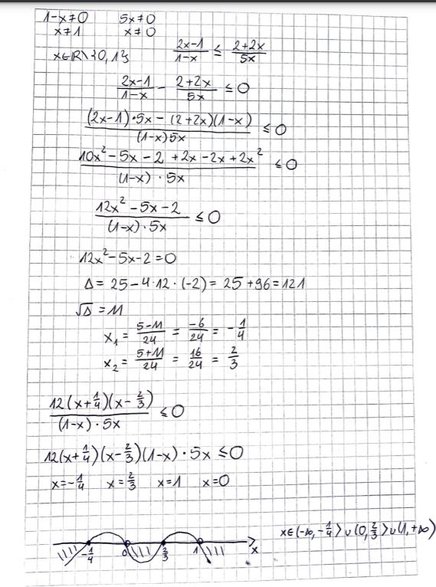 1-x≠0 5x≠0
x≠1 x≠0
x∈ℝ\{0,1} (2x-1)/(1-x) ≤ (2+2x)/(5x)
(2x-1)/(1-x) - (2+2x)/(5x) ≤ 0
((2x-1)·5x - (2+2x)(1-x))/((1-x)5x) ≤ 0
(10x²-5x-2+2x-2x+2x²)/((1-x)·5x) ≤ 0
(12x²-5x-2)/((1-x)·5x) ≤ 0
12x²-5x-2=0
Δ = 25-4·12·(-2) = 25+96=121
√Δ = 11
x₁ = (5-11)/24 = -6/24 = -1/4
x₂ = (5+11)/24 = 16/24 = 2/3
(12(x+1/4)(x-2/3))/((1-x)·5x) ≤ 0
12(x+1/4)(x-2/3)(1-x)·5x ≤ 0
x=-1/4 x=2/3 x=1 x=0
x∈(-∞,-1/4⟩∪(0,2/3⟩∪(1,+∞)
-1/4 0 2/3 1 x